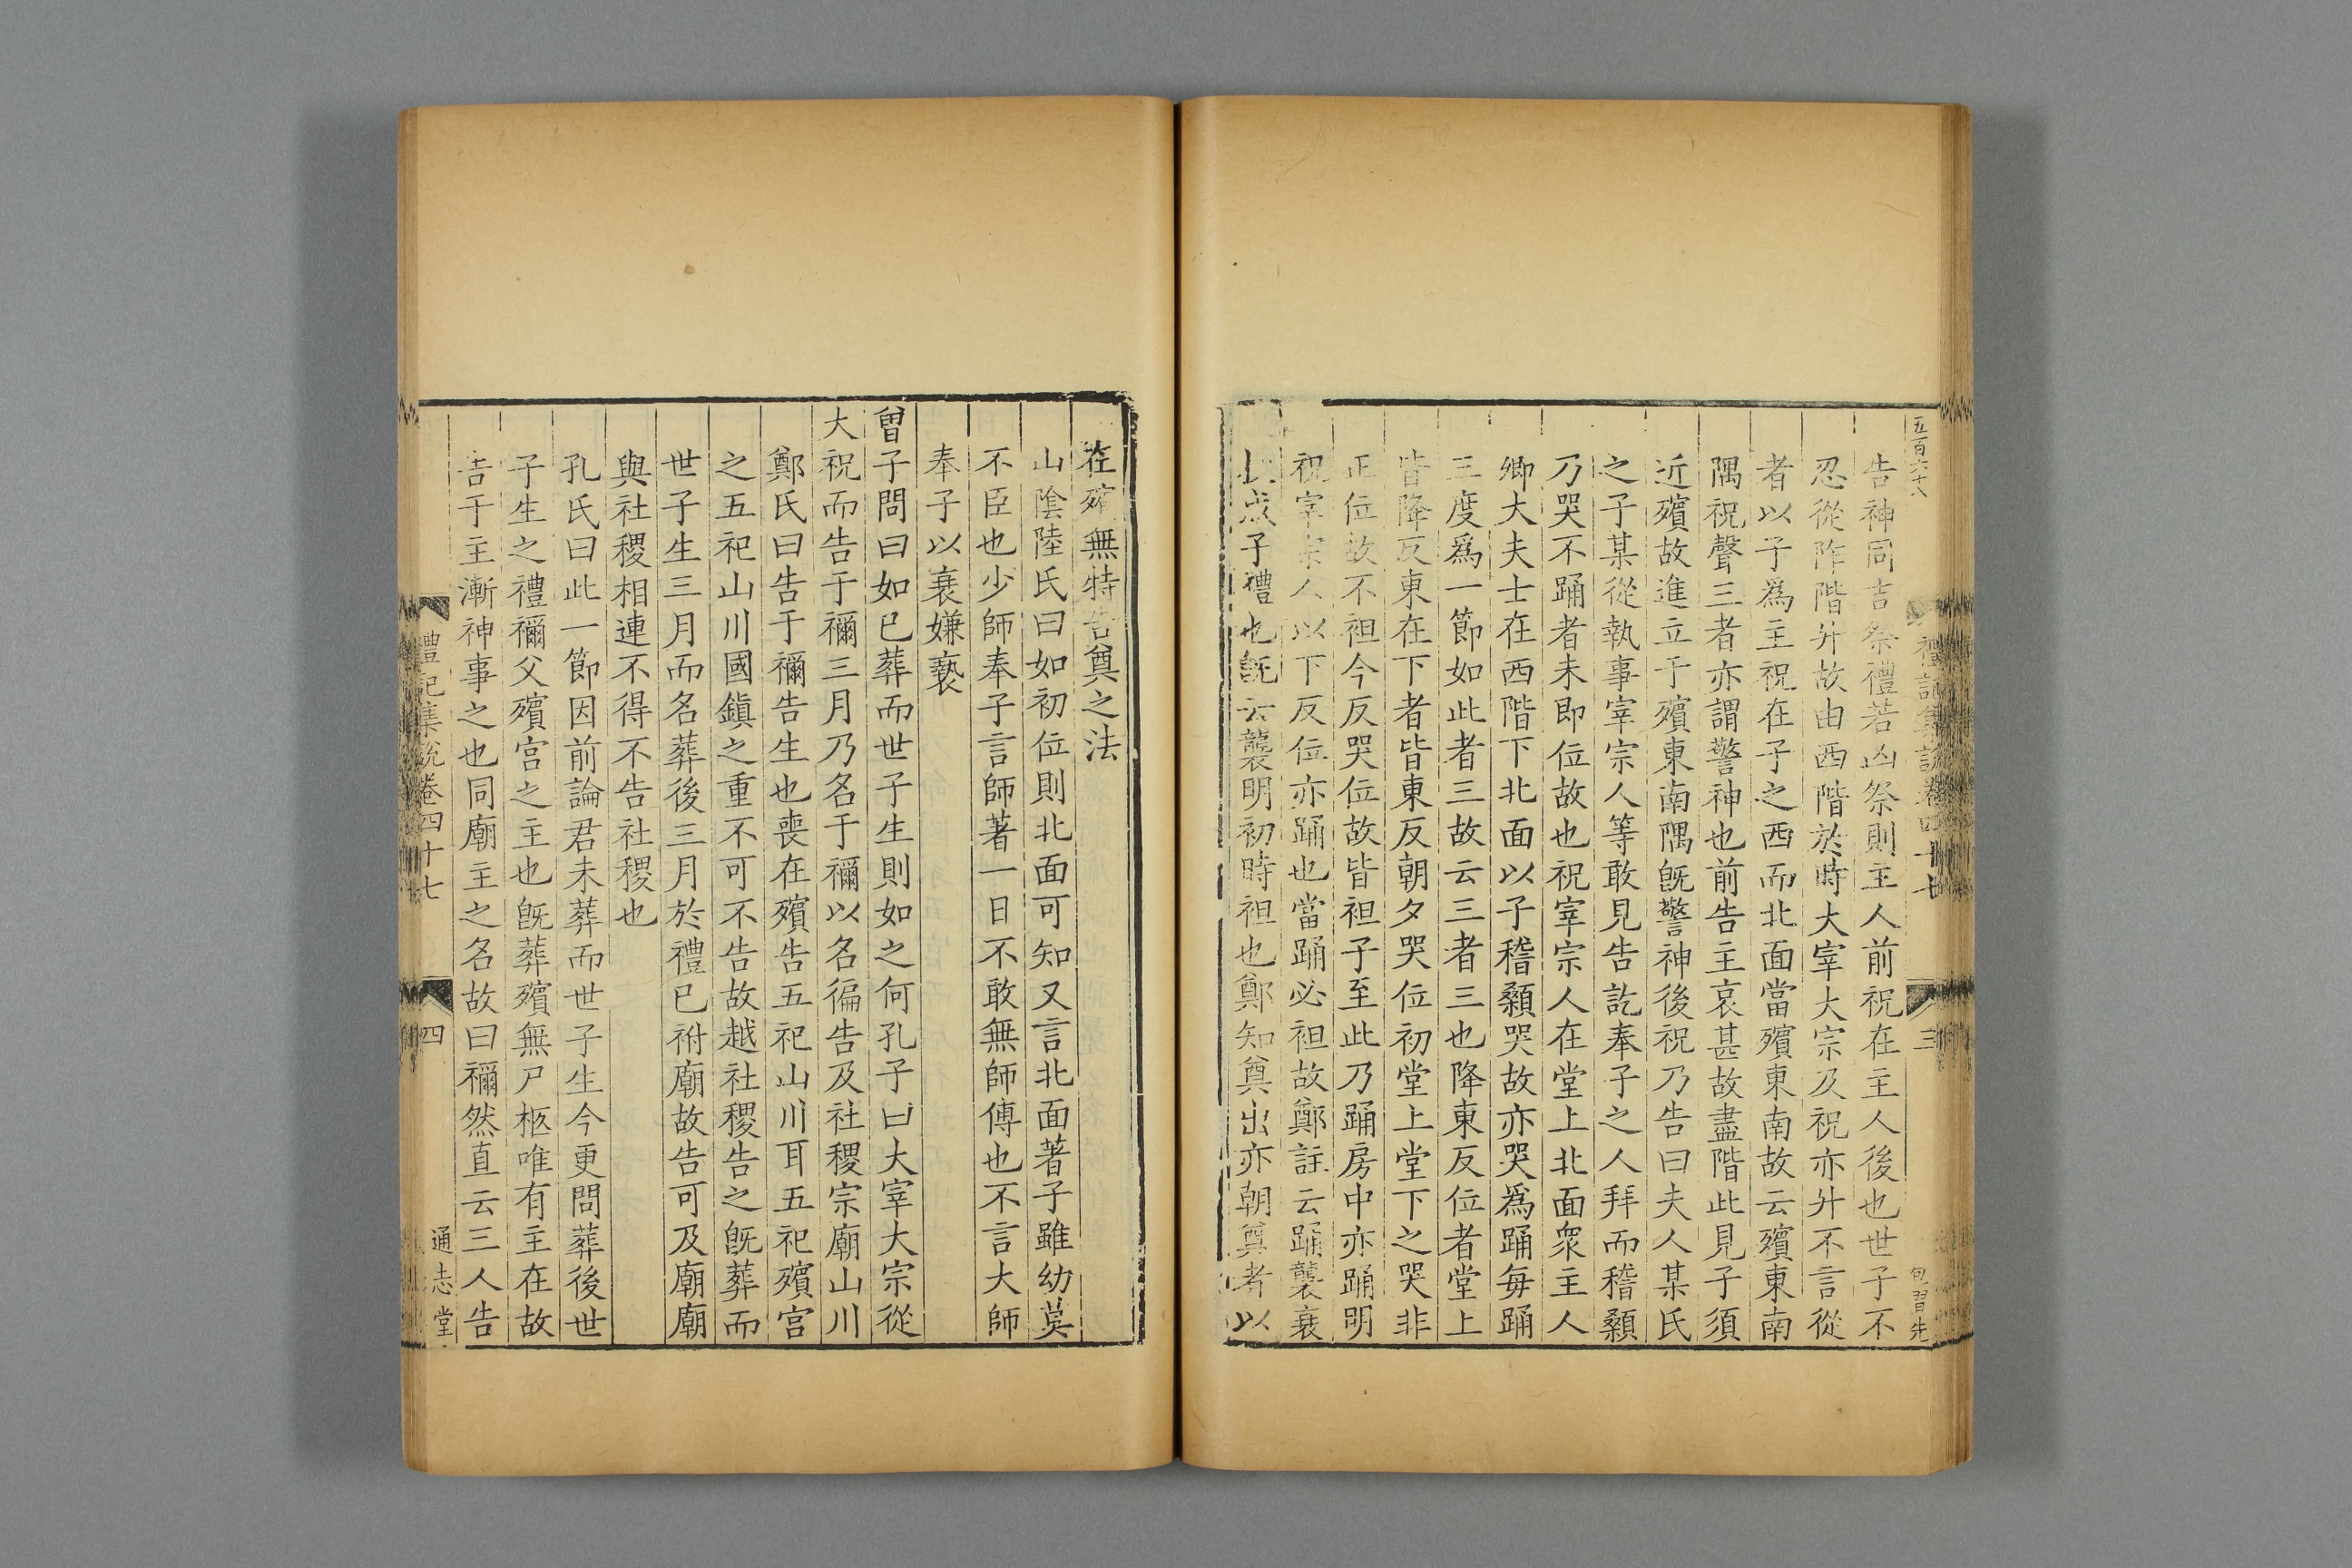 五百六十八
禮記集説卷四十七
三
包習先
告神同吉祭禮若凶祭則主人前祝在主人後也世子不
忍從阼階升故由西階於時大宰大宗及祝亦升不言從
者以子爲主祝在子之西而北面當殯東南故云殯東南
隅祝聲三者亦謂警神也前告主哀甚故盡階此見子須
近殯故進立于殯東南隅旣警神後祝乃告曰夫人某氏
之子某從執事宰宗人等敢見告訖奉子之人拜而稽顙
乃哭不踊者未即位故也祝宰宗人在堂上北面衆主人
卿大夫士在西階下北面以子稽顙哭故亦哭爲踊每踊
三度爲一節如此者三故云三者三也降東反位者堂上
皆降反東在下者皆東反朝夕哭位初堂上堂下之哭非
正位故不袒今反哭位故皆袒子至此乃踊房中亦踊明
祝宰宗人以下反位亦踊也當踊必袒故鄭註云踊襲衰
成子禮也旣云襲明初時袒也鄭知奠出亦朝奠者以
在殯無特告奠之法
山陰陸氏曰如初位則北面可知又言北面著子雖幼莫
不臣也少師奉子言師著一日不敢無師傅也不言大師
奉子以衰嫌褻
曾子問曰如已葬而世子生則如之何孔子曰大宰大宗從
大祝而告于禰三月乃名于禰以名徧告及社稷宗廟山川
鄭氏曰告于禰告生也喪在殯告五祀山川耳五祀殯宮
之五祀山川國鎮之重不可不告故越社稷告之旣葬而
世子生三月而名葬後三月於禮已祔廟故告可及廟廟
與社稷相連不得不告社稷也
孔氏曰此一節因前論君未葬而世子生今更問葬後世
子生之禮禰父殯宮之主也旣葬殯無尸柩唯有主在故
告于主漸神事之也同廟主之名故曰禰然直云三人告
禮記集説卷四十七
四
通志堂